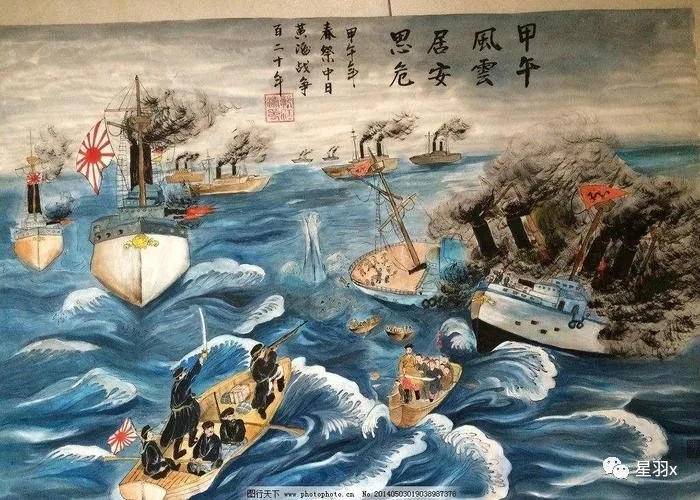 甲午
風雲
居安
思危
甲午年
春祭中日
黄海战争
百二十年
星羽x
图行天下 www.photophoto.cn No.20140503019038987378